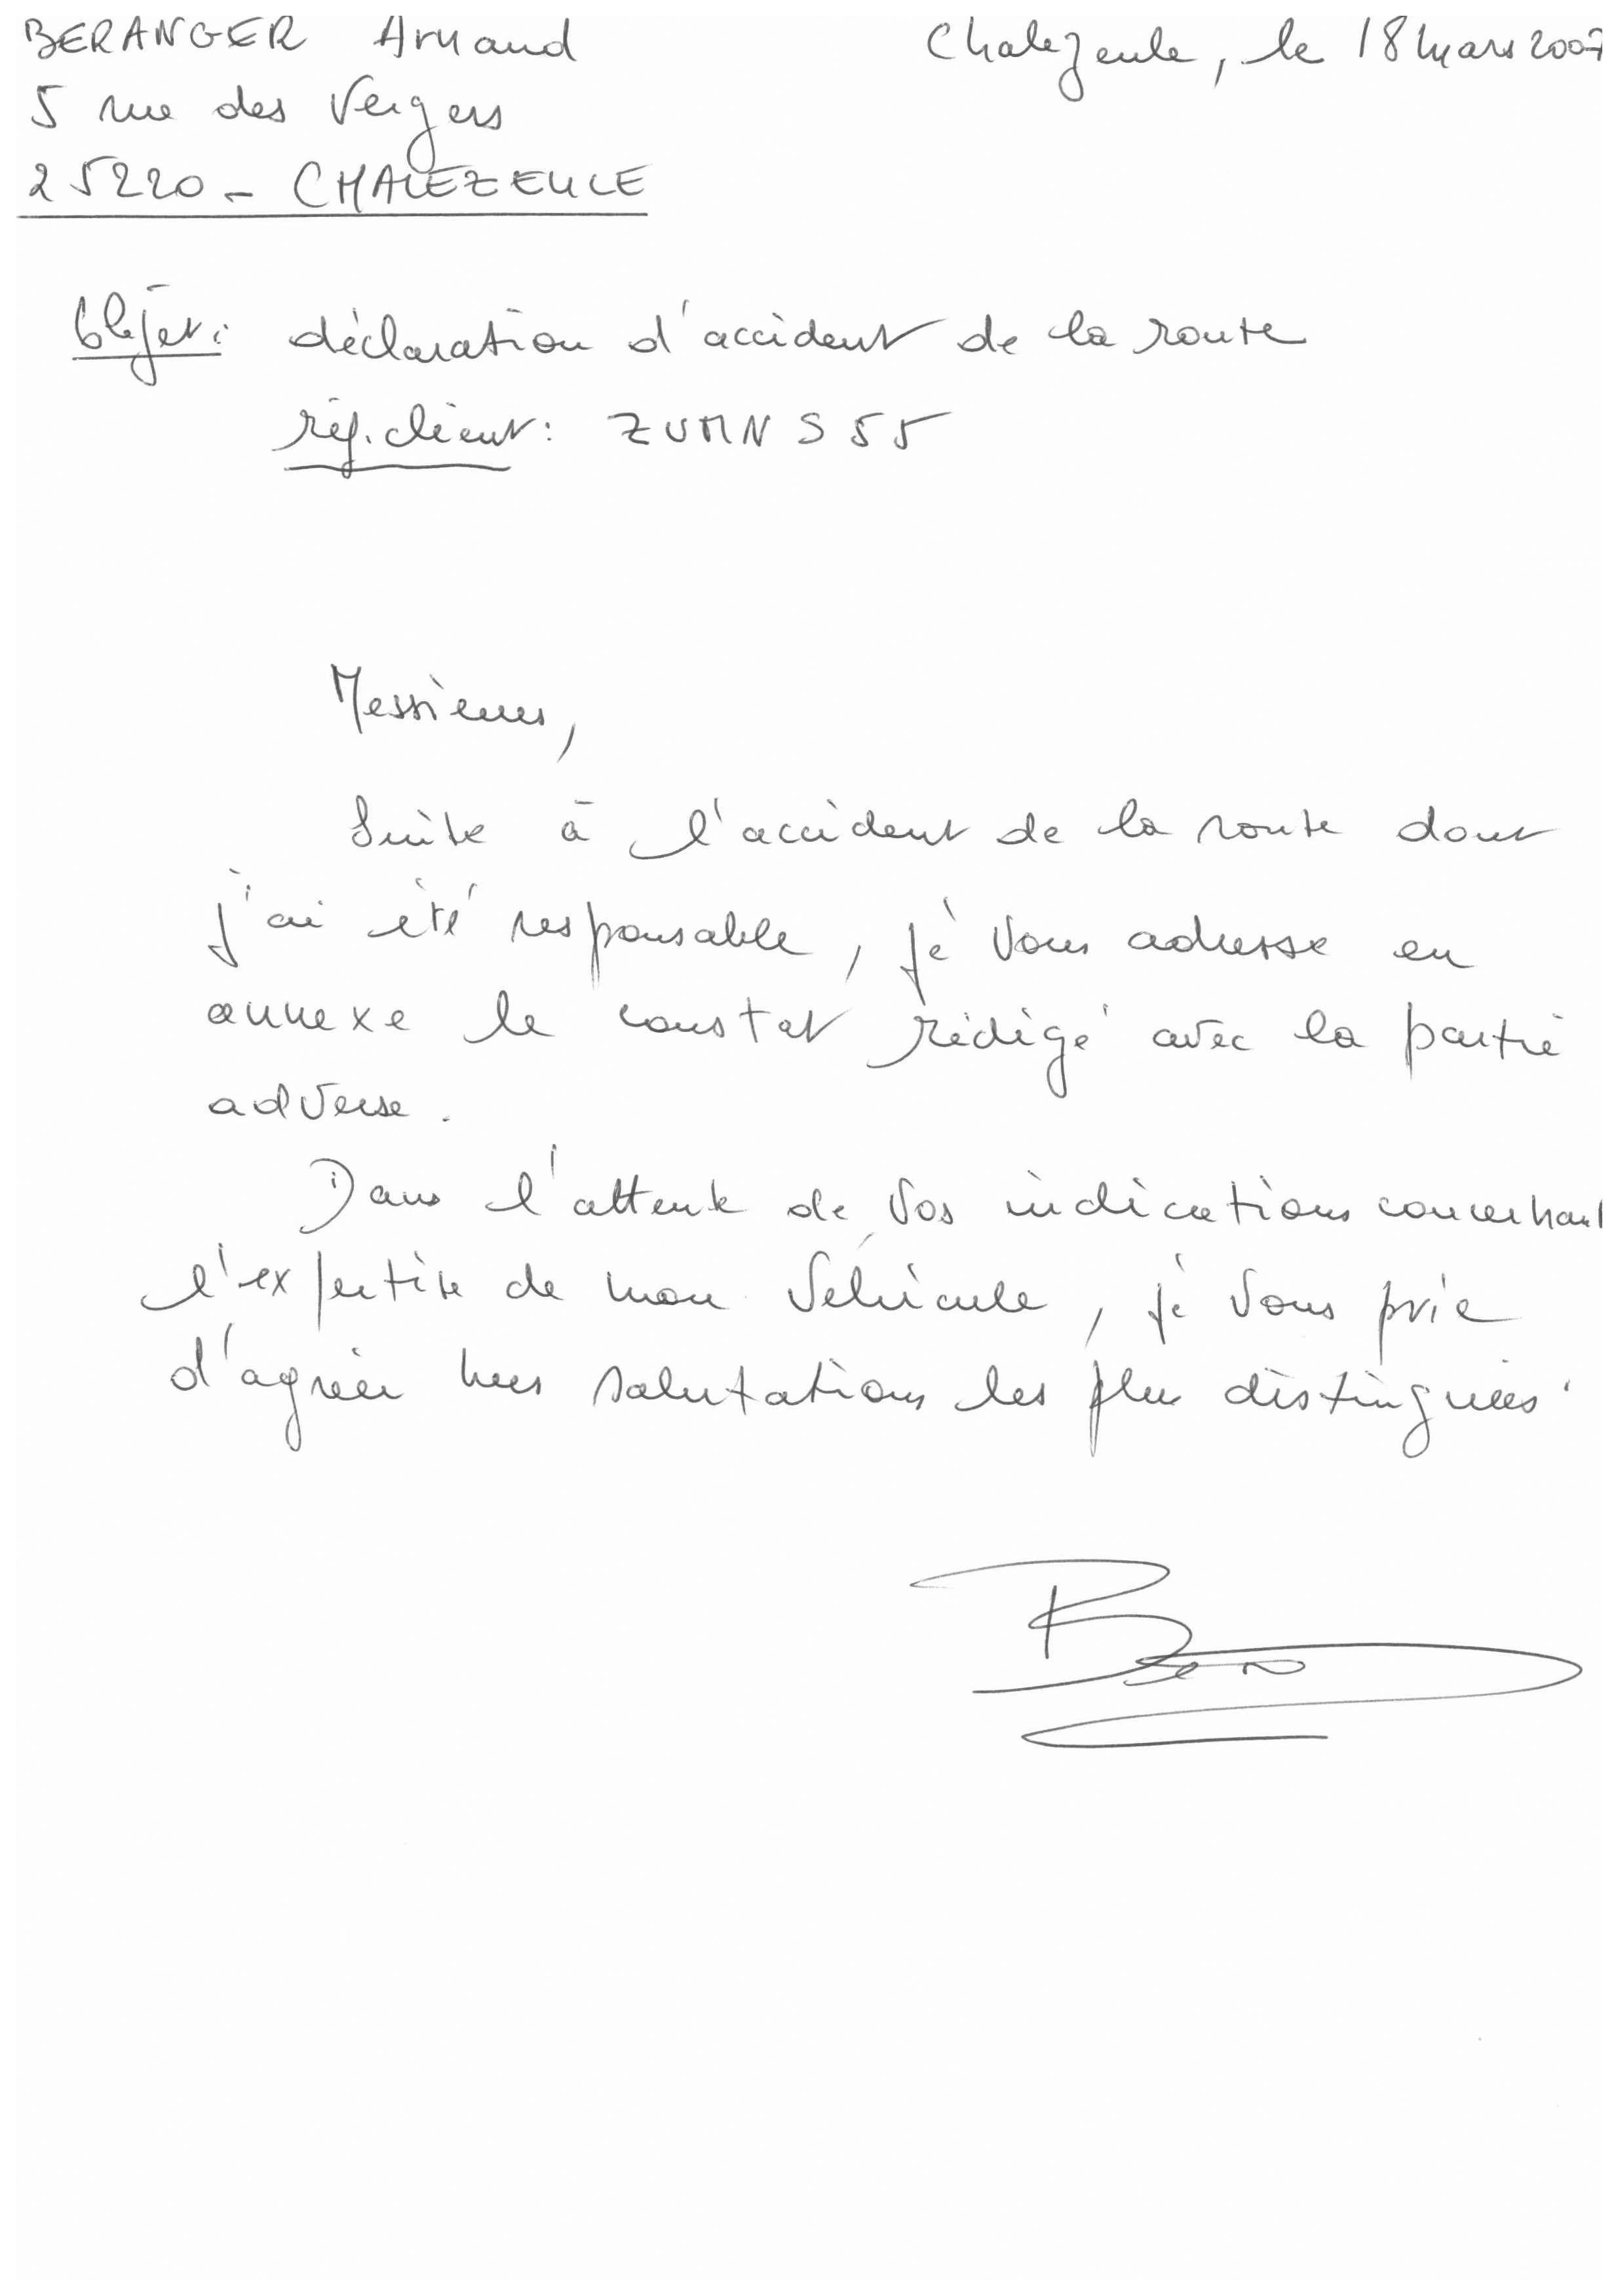 BERANGER Arnaud
Chalezeule, le 18 mars 2007
5 rue des Vergers
25220 - CHALEZEULE
Objet: déclaration d'accident de la route
réf. client: ZUMNS55
Messieurs,
Suite à l'accident de la route dont
j'ai été responsable, je vous adresse en
annexe le constat rédigé avec la partie
adverse.
Dans l'attente de vos indications concernant
l'expertise de mon véhicule, je vous prie
d'agréer mes salutations les plus distinguées.